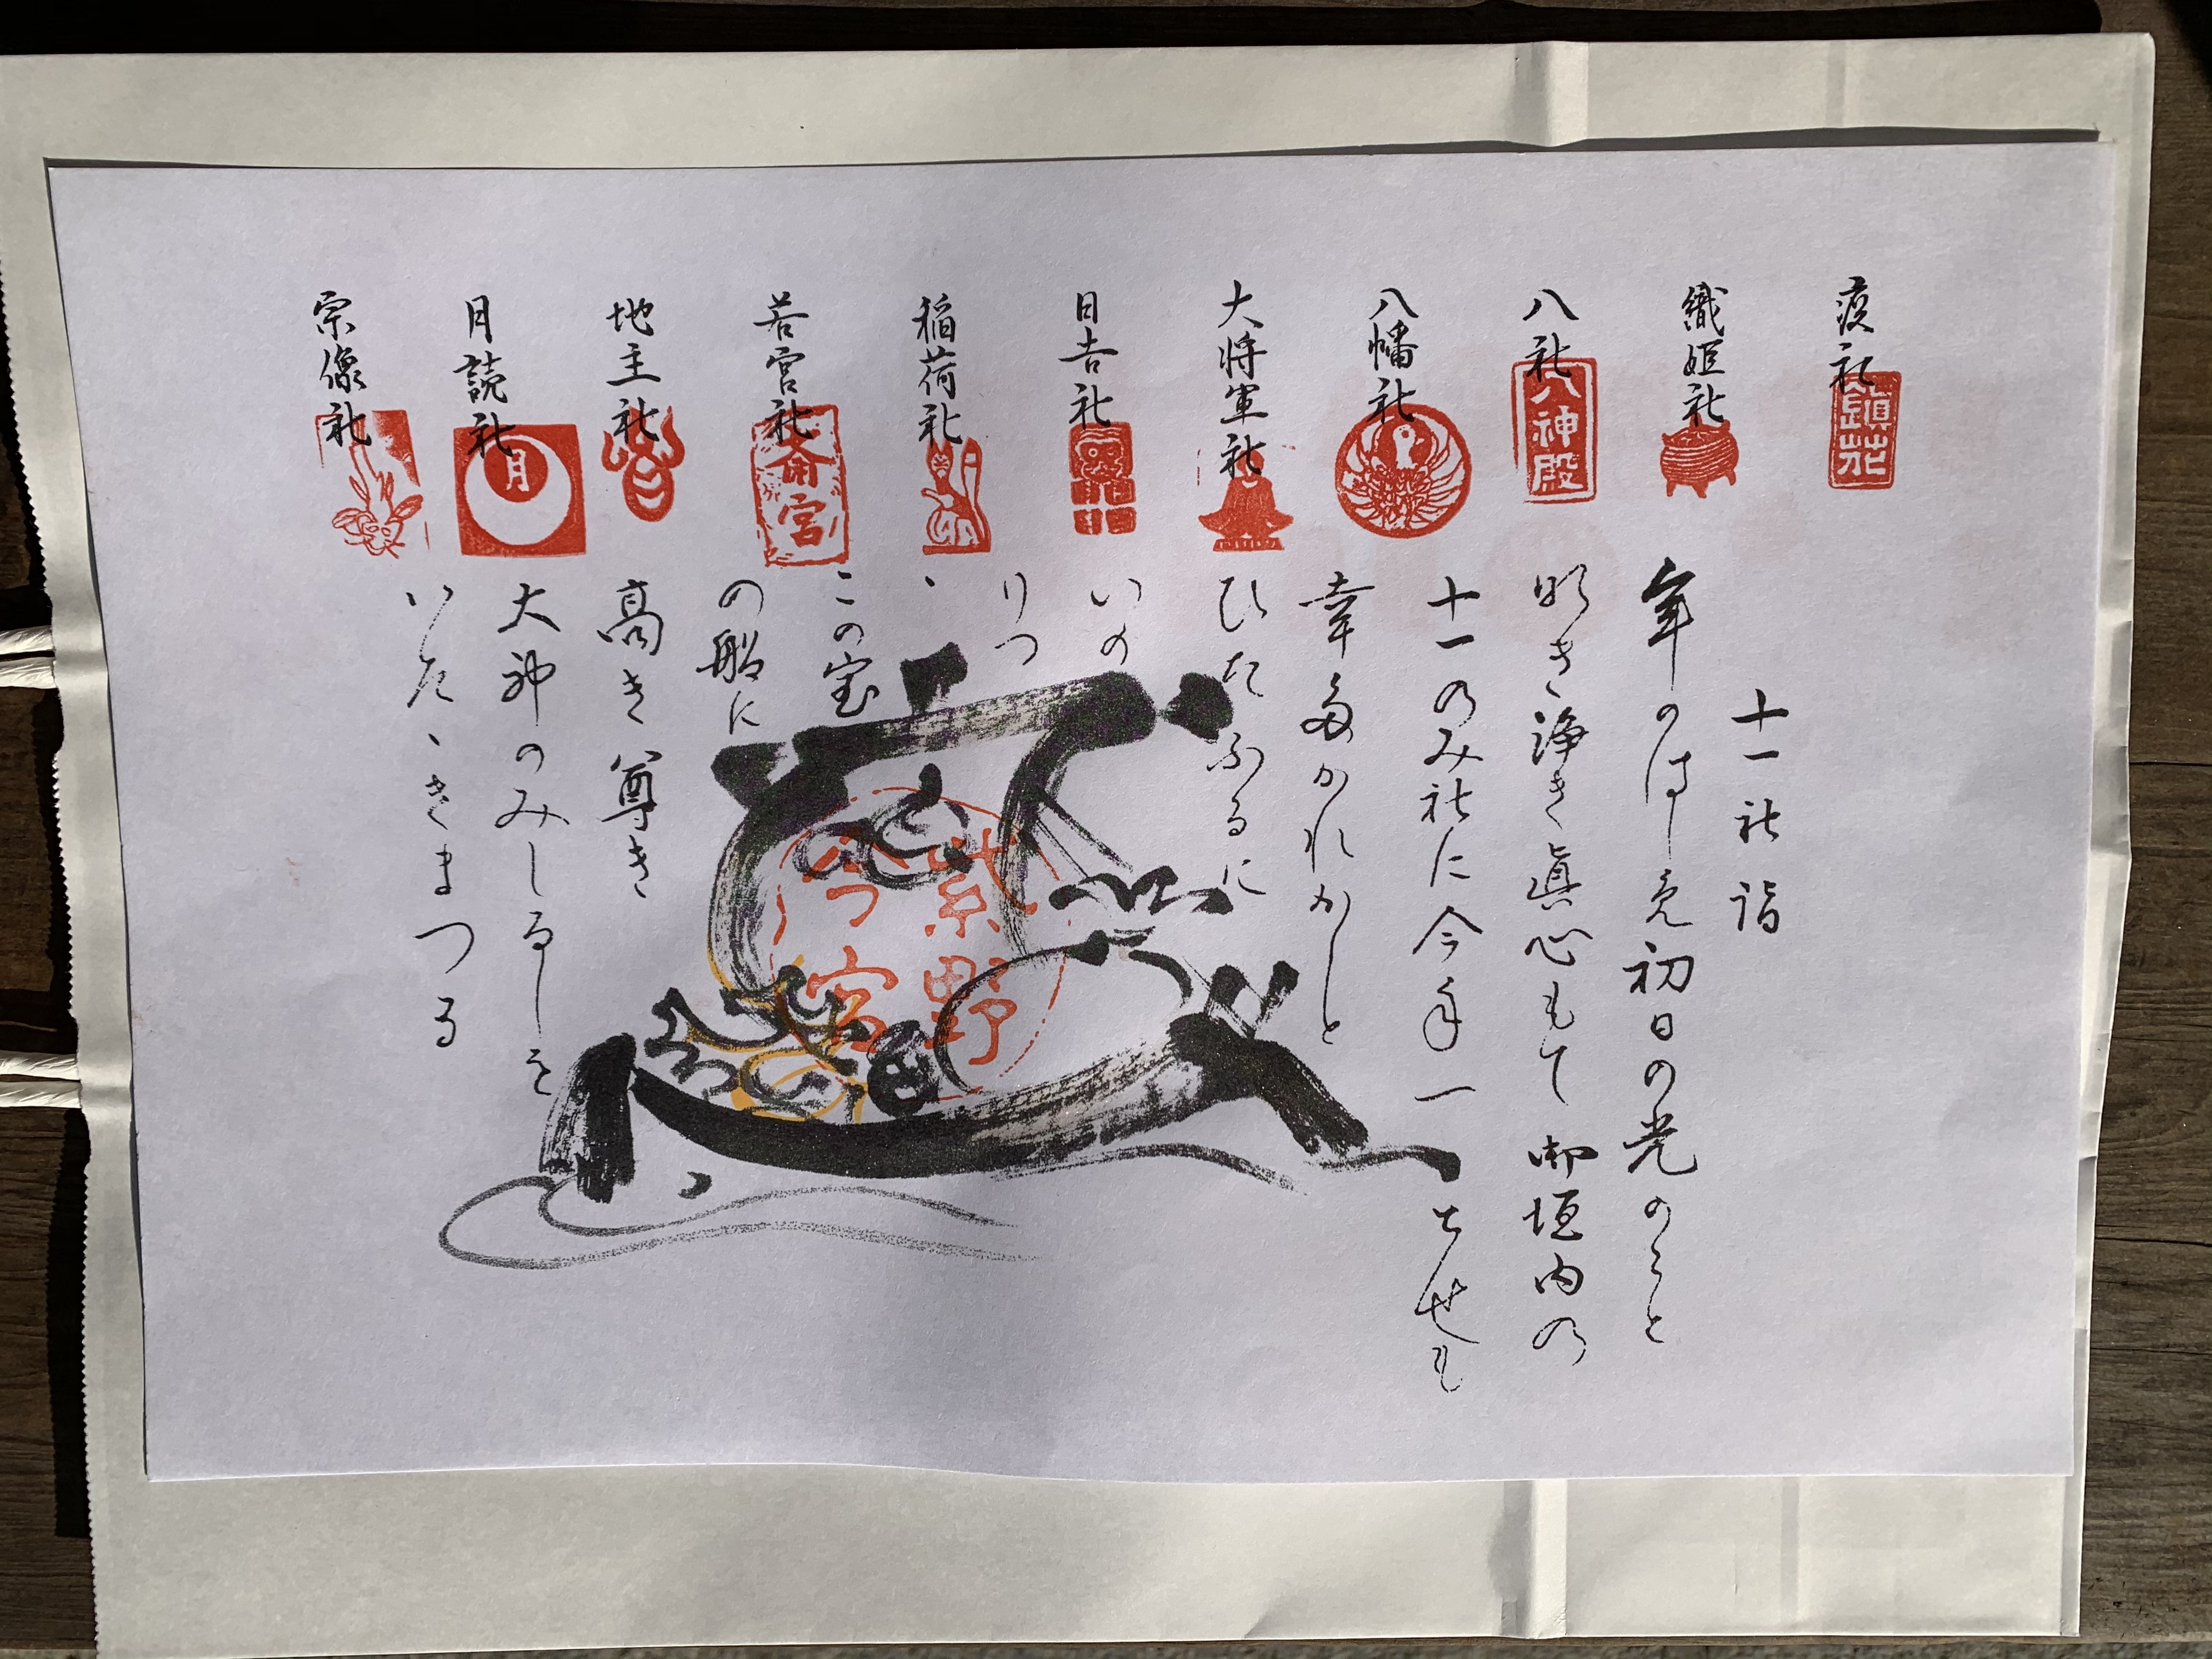 疫社
鎮花
織姫社
八社
八神殿
八幡社
大将軍社
日吉社
稲荷社
若宮社
斎宮
地主社
月読社
月
宗像社
十一社詣
年のはしめ初日の光のこと
明き浄き眞心もて御垣内の
十一のみ社に今年一とせも
幸多かれかしと
ひたふるに
いの
りつ
ゝ
この宝
の船に
高き尊き
大神のみしるしを
いたゝきまつる
紫野
今宮